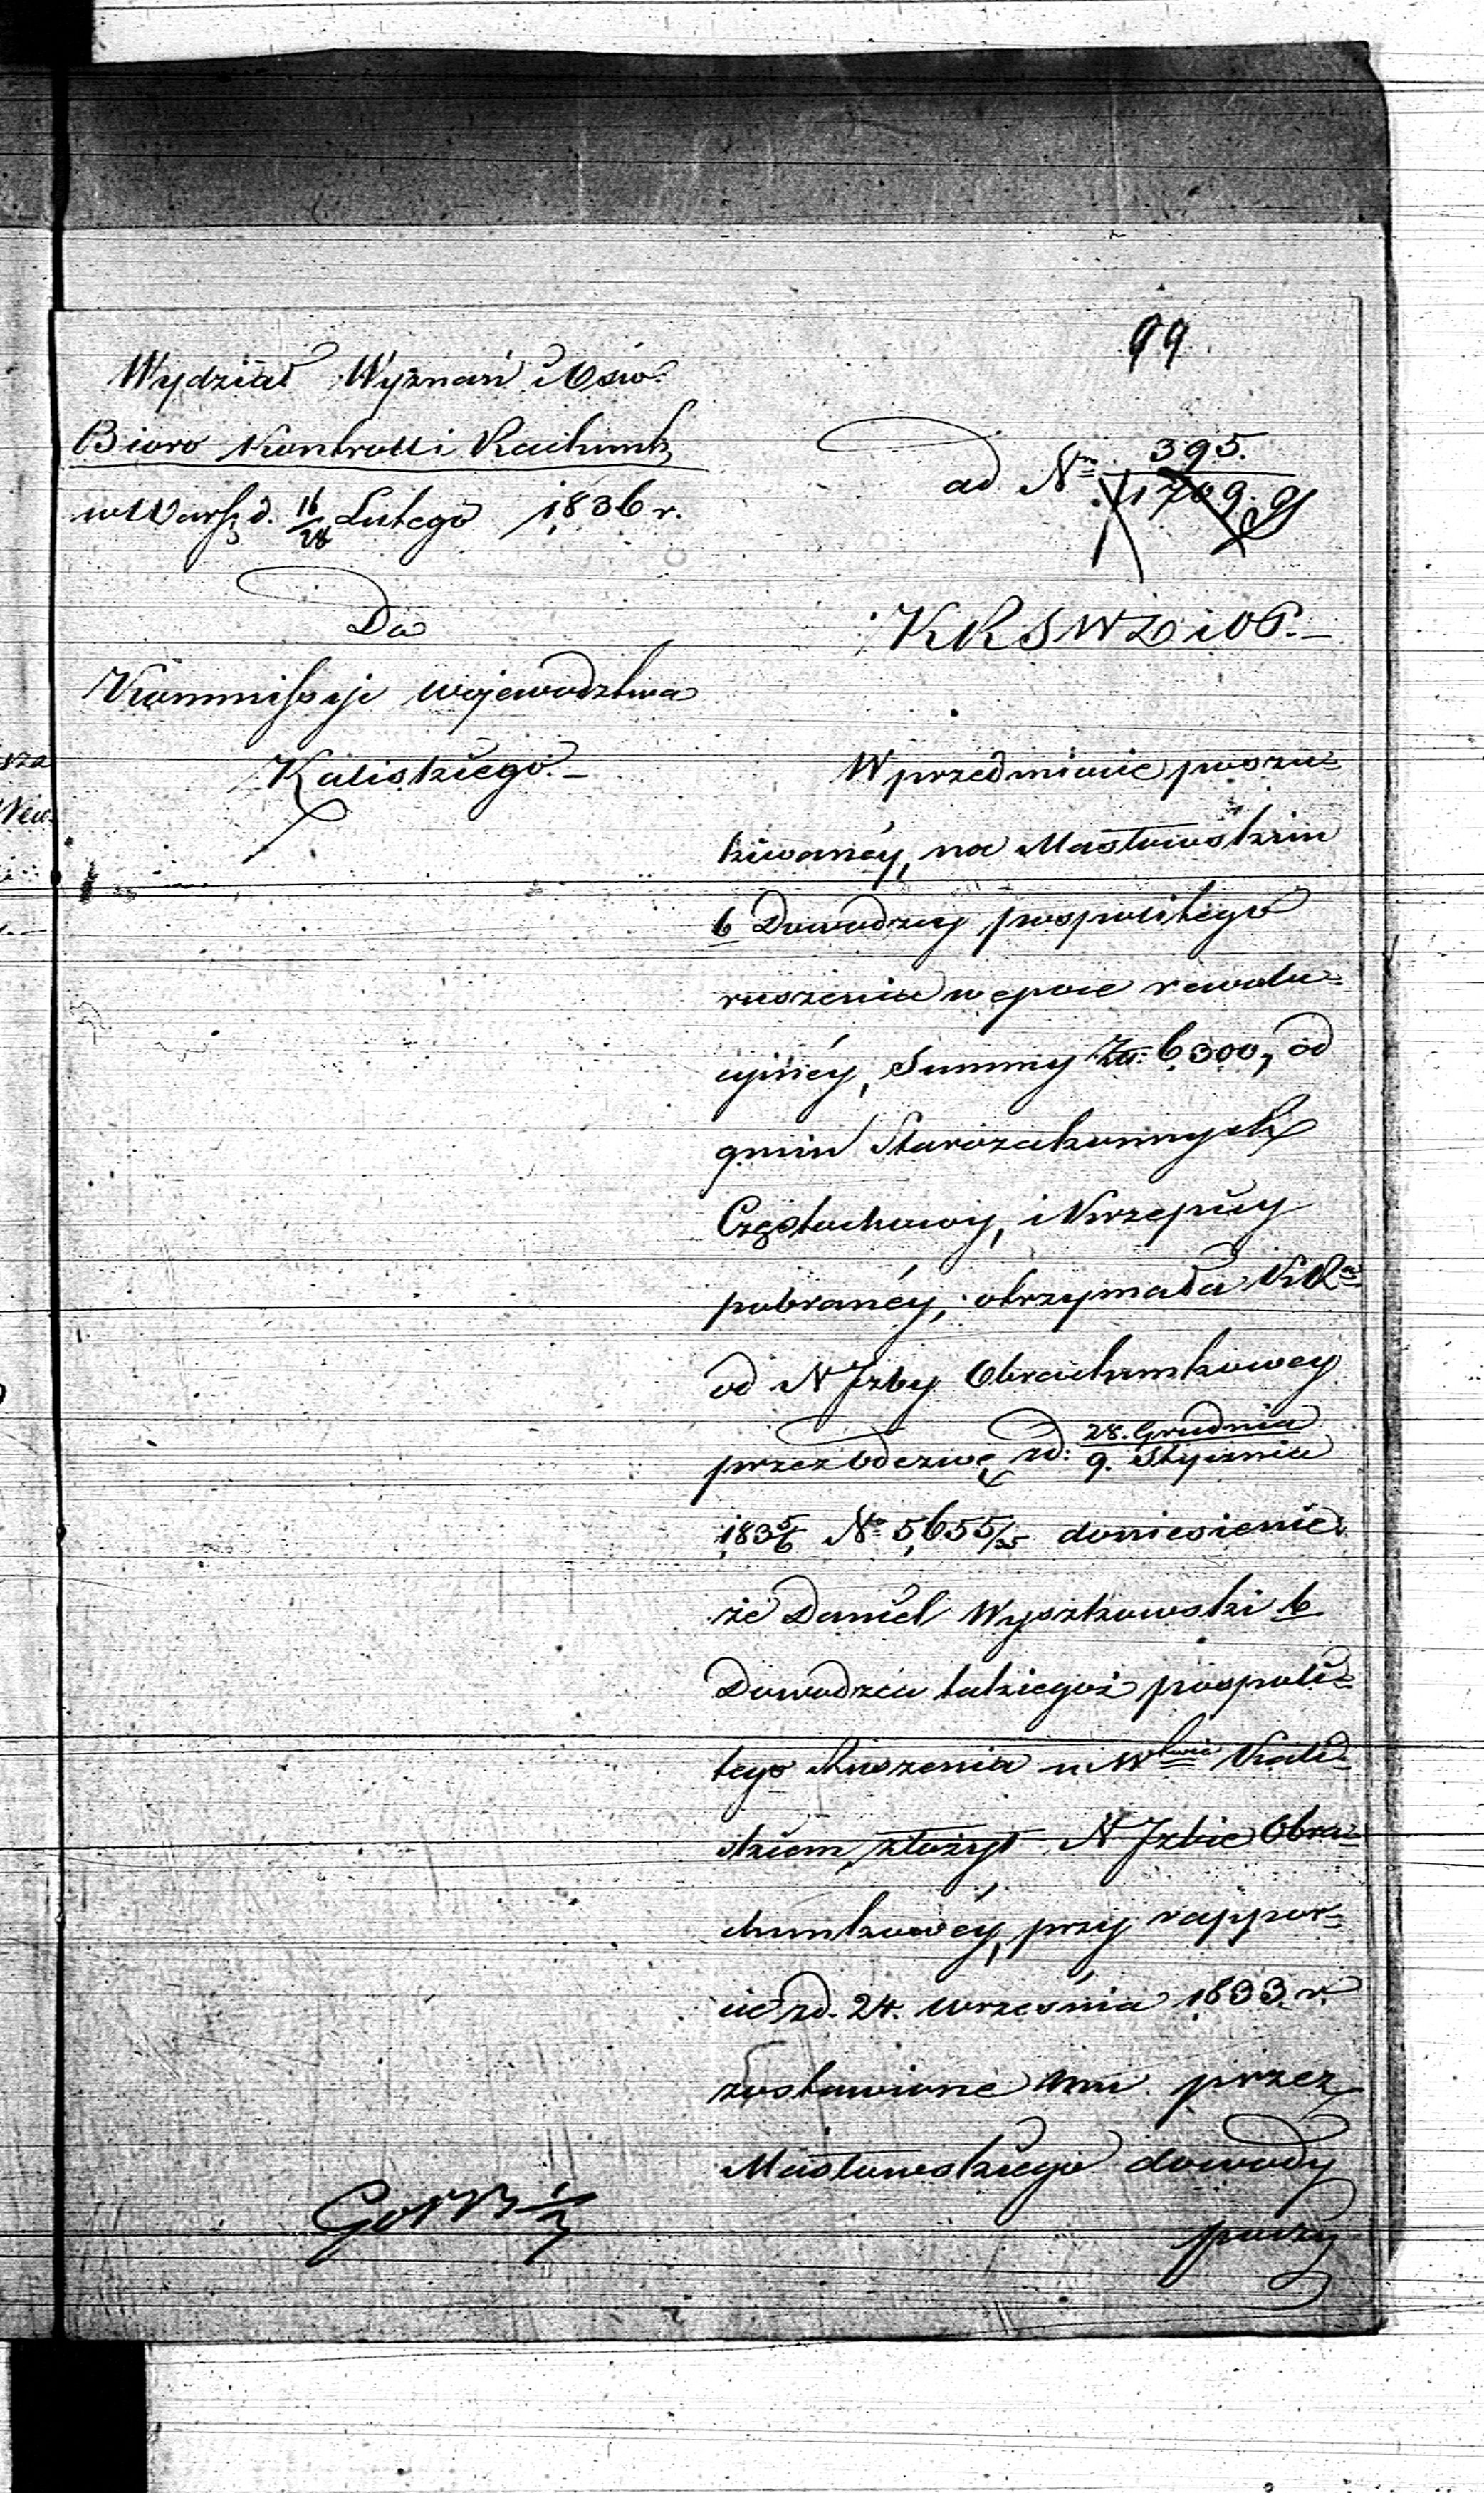 99
Wydział Wyznań i Ośw.
Bioro Kontrolli Rachunk
w Warsz d. 16/28 Lutego 1836 r.
Do
Kommissyi Województwa
Kaliskiego.–
ad Nrm 395./1709.
KRSWD i OP.–
W przedmiocie poszu=
kiwanéy, na Masłowskim
b Dowodzcy pospolitego
ruszenia w epoce rewolu=
cyinéy, Summy Złł: 6,300, od
gmin Starozakonnych
Częstochowy, i Krzepicy
pobranéy, otrzymała KRa
od N Jzby Obrachunkowey
przez Odezwę z d: 28. Grudnia/9. Stycznia
1835/6 No 5,655/25 doniesienie
że Daniel Wyszkowski b
Dowodzca takiegoż pospoli=
tego Ruszenia w Wtwie Kali=
skiem, złożył N Jzbie Obra=
chunkowéy, przy rappor=
cie z d. 24. Września 1833. r.
zostawione mu przez
Masłowskiego dowody
poszu
sza